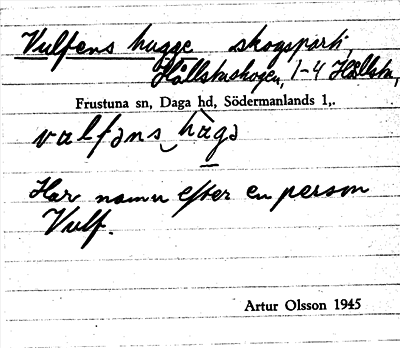 Vulfens hagge skogsparti,
Hållstaskogen, 1-4 Hållsta,
Frustuna sn, Daga hd, Södermanlands l,.
valfəns hagə
Har namn efter en person
Vulf.
Artur Olsson 1945